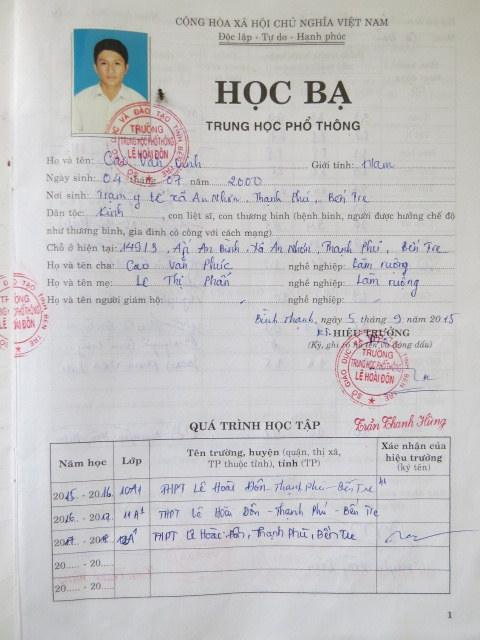 CỘNG HÒA XÃ HỘI CHỦ NGHĨA VIỆT NAM
Độc lập - Tự do - Hạnh phúc
HỌC BẠ
TRUNG HỌC PHỔ THÔNG
SỞ GIÁO DỤC VÀ ĐÀO TẠO TỈNH BẾN TRE
TRƯỜNG
TRUNG HỌC PHỔ THÔNG
LÊ HOÀI ĐÔN
Họ và tên: Cao Văn Giới tính: Nam
Ngày sinh: 04 tháng 07 năm 2000
Nơi sinh: Trạm y tế xã An Nhơn, Thạnh Phú, Bến Tre
Dân tộc: Kinh, con liệt sĩ, con thương binh (bệnh binh, người được hưởng chế độ
như thương binh, gia đình có công với cách mạng):
Chỗ ở hiện tại: 149/3, Ấp An Bình, Xã An Nhơn, Thạnh Phú, Bến Tre
Họ và tên cha: Cao Văn Phúc nghề nghiệp: Làm ruộng
Họ và tên mẹ: Lê Thị Phấn nghề nghiệp: Làm ruộng
Họ và tên người giám hộ: nghề nghiệp:
Bình Thạnh, ngày 5 tháng 9 năm 2015
HIỆU TRƯỞNG
(Ký, ghi rõ họ tên và đóng dấu)
SỞ GIÁO DỤC VÀ ĐÀO TẠO TỈNH BẾN TRE
TRƯỜNG
TRUNG HỌC PHỔ THÔNG
LÊ HOÀI ĐÔN
Trần Thanh Hùng
QUÁ TRÌNH HỌC TẬP
Năm học Lớp Tên trường, huyện (quận, thị xã, TP thuộc tỉnh), tỉnh (TP) Xác nhận của hiệu trưởng (ký tên)
2015 - 2016 10A1 THPT Lê Hoài Đôn - Thạnh Phú - Bến Tre
2016 - 2017 11A1 THPT Lê Hoài Đôn - Thạnh Phú - Bến Tre
2017 - 2018 12A1 THPT Lê Hoài Đôn, Thạnh Phú, Bến Tre
20..... - 20.....
20..... - 20.....
1